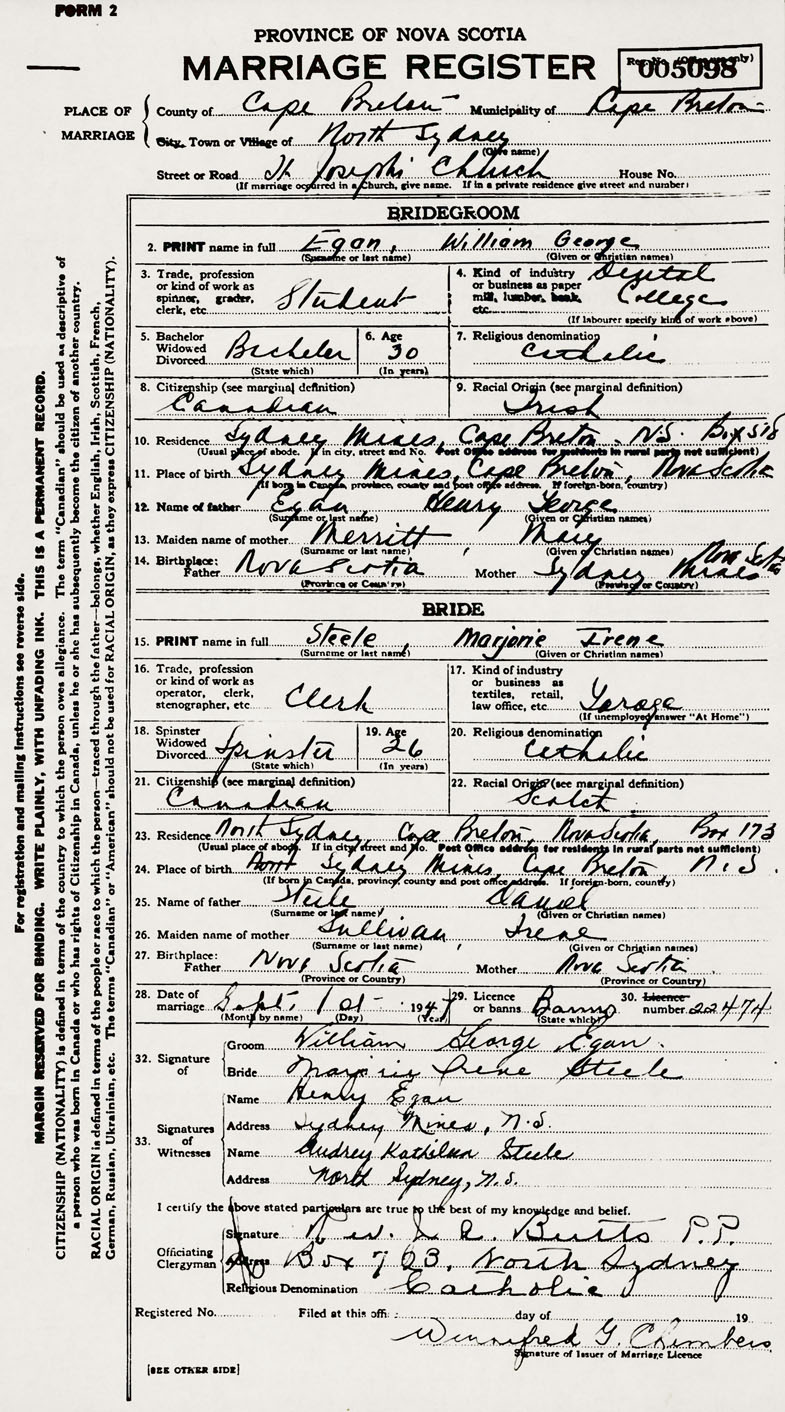 FORM 2
PROVINCE OF NOVA SCOTIA
MARRIAGE REGISTER
Reg. No. (Office use only)
005098
PLACE OF MARRIAGE
County of Cape Breton Municipality of Cape Breton
City, Town or Village of North Sydney
(Give name)
Street or Road St Joseph's Church House No.
(If marriage occurred in a Church, give name. If in a private residence give street and number)
BRIDEGROOM
2. PRINT name in full Egan, William George
(Surname or last name) (Given or Christian names)
3. Trade, profession or kind of work as spinner, grader, clerk, etc. Student
4. Kind of industry or business as paper mill, lumber, bank, etc. Dental College
(If labourer specify kind of work above)
5. Bachelor Widowed Divorced Bachelor
(State which)
6. Age 30
(In years)
7. Religious denomination Catholic
8. Citizenship (see marginal definition) Canadian
9. Racial Origin (see marginal definition) Irish
10. Residence Sydney Mines, Cape Breton, N.S. Box 518
(Usual place of abode. If in city, street and No. Post Office address for residents in rural parts not sufficient)
11. Place of birth Sydney Mines, Cape Breton, Nova Scotia
(If born in Canada, province, county and post office address. If foreign-born, country)
12. Name of father Egan, Henry George
(Surname or last name) (Given or Christian names)
13. Maiden name of mother Merritt, Mary
(Surname or last name) (Given or Christian names)
14. Birthplace: Father Nova Scotia Mother Sydney Mines Nova Scotia
(Province or Country) (Province or Country)
BRIDE
15. PRINT name in full Steele, Marjorie Irene
(Surname or last name) (Given or Christian names)
16. Trade, profession or kind of work as operator, clerk, stenographer, etc. Clerk
17. Kind of industry or business as textiles, retail, law office, etc. Garage
(If unemployed answer "At Home")
18. Spinster Widowed Divorced Spinster
(State which)
19. Age 26
(In years)
20. Religious denomination Catholic
21. Citizenship (see marginal definition) Canadian
22. Racial Origin (see marginal definition) Scotch
23. Residence North Sydney, Cape Breton, Nova Scotia, Box 173
(Usual place of abode. If in city, street and No. Post Office address for residents in rural parts not sufficient)
24. Place of birth Sydney Mines, Cape Breton N.S.
(If born in Canada, province, county and post office address. If foreign-born, country)
25. Name of father Steele Daniel
(Surname or last name) (Given or Christian names)
26. Maiden name of mother Sullivan, Irene
(Surname or last name) (Given or Christian names)
27. Birthplace: Father Nova Scotia Mother Nova Scotia
(Province or Country) (Province or Country)
28. Date of marriage Sept. 1st 1947
(Month by name) (Day) (Year)
29. Licence or banns Banns
(State which)
30. Licence number 22474
32. Signature of
Groom William George Egan.
Bride Marjorie Irene Steele
33. Signatures of Witnesses
Name Henry Egan
Address Sydney Mines, N.S.
Name Audrey Kathleen Steele
Address North Sydney, N.S.
I certify the above stated particulars are true to the best of my knowledge and belief.
Officiating Clergyman
Signature Rev. Butts P.P.
Address Box 703, North Sydney
Religious Denomination Catholic
Registered No. Filed at this office day of 19
Winnifred G. Chambers
Signature of Issuer of Marriage Licence
[SEE OTHER SIDE]
For registration and mailing instructions see reverse side.
MARGIN RESERVED FOR BINDING. WRITE PLAINLY, WITH UNFADING INK. THIS IS A PERMANENT RECORD.
CITIZENSHIP (NATIONALITY) is defined in terms of the country to which the person owes allegiance. The term "Canadian" should be used as descriptive of
a person who was born in Canada or who has rights of Citizenship in Canada, unless he or she has subsequently become the citizen of another country.
RACIAL ORIGIN is defined in terms of the people or race to which the person—traced through the father—belongs, whether English, Irish, Scottish, French,
German, Russian, Ukrainian, etc. The terms "Canadian" or "American" should not be used for RACIAL ORIGIN, as they express CITIZENSHIP (NATIONALITY).